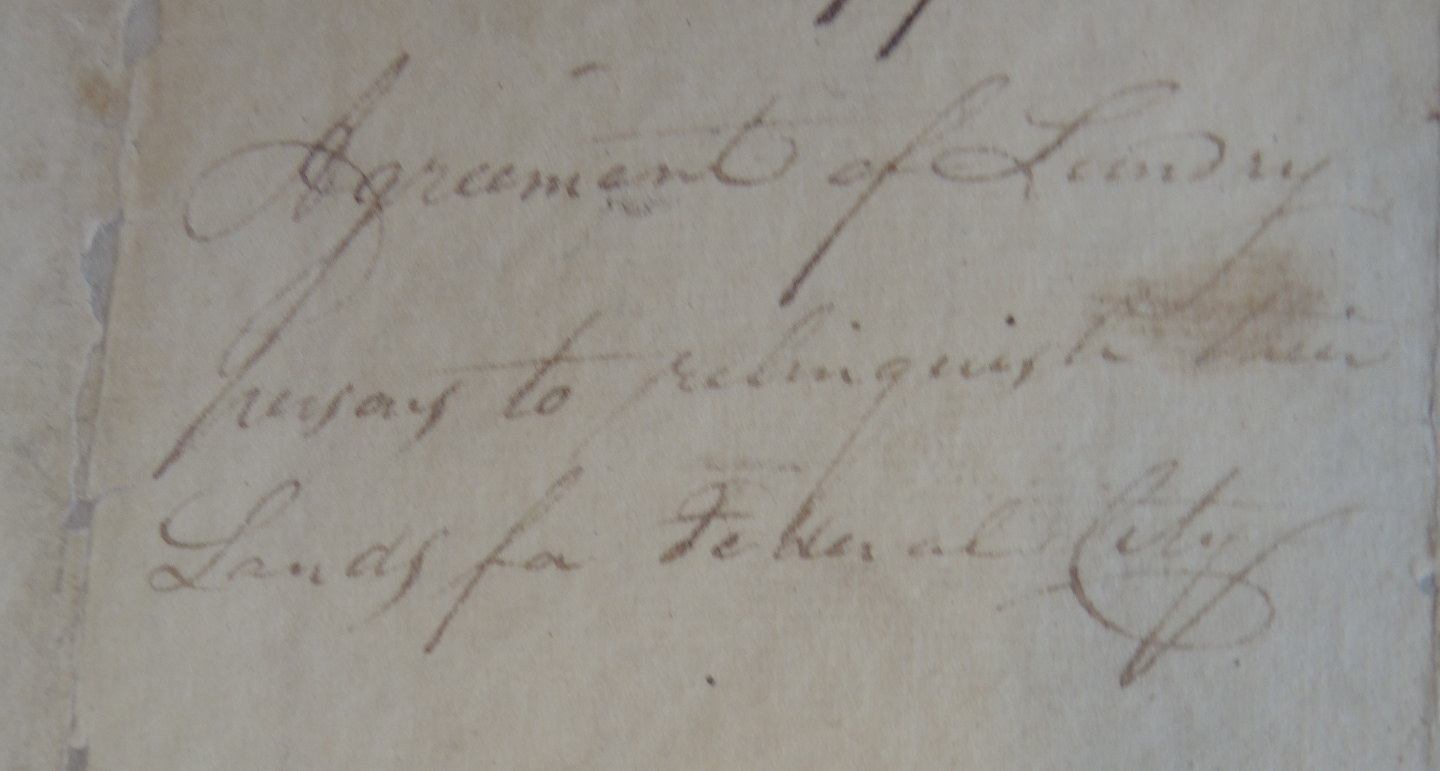 Agreement of Sundry
persons to relinquish their
Lands for Federal City